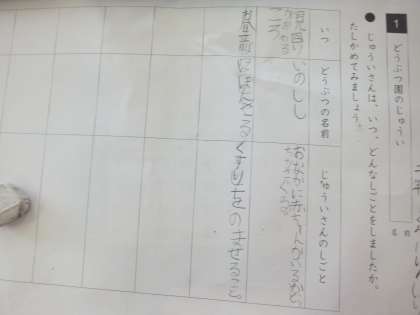 1 どうぶつ園のじゅうい
名前
● じゅういさんは、いつ、どんなしごとをしましたか。
たしかめてみましょう。
いつ
どうぶつの名前
じゅういさんのしごと
見回り
ころ
いのしし
おなかに赤ちゃんがいるか
お昼前
にほんざる
くすりをのませること。